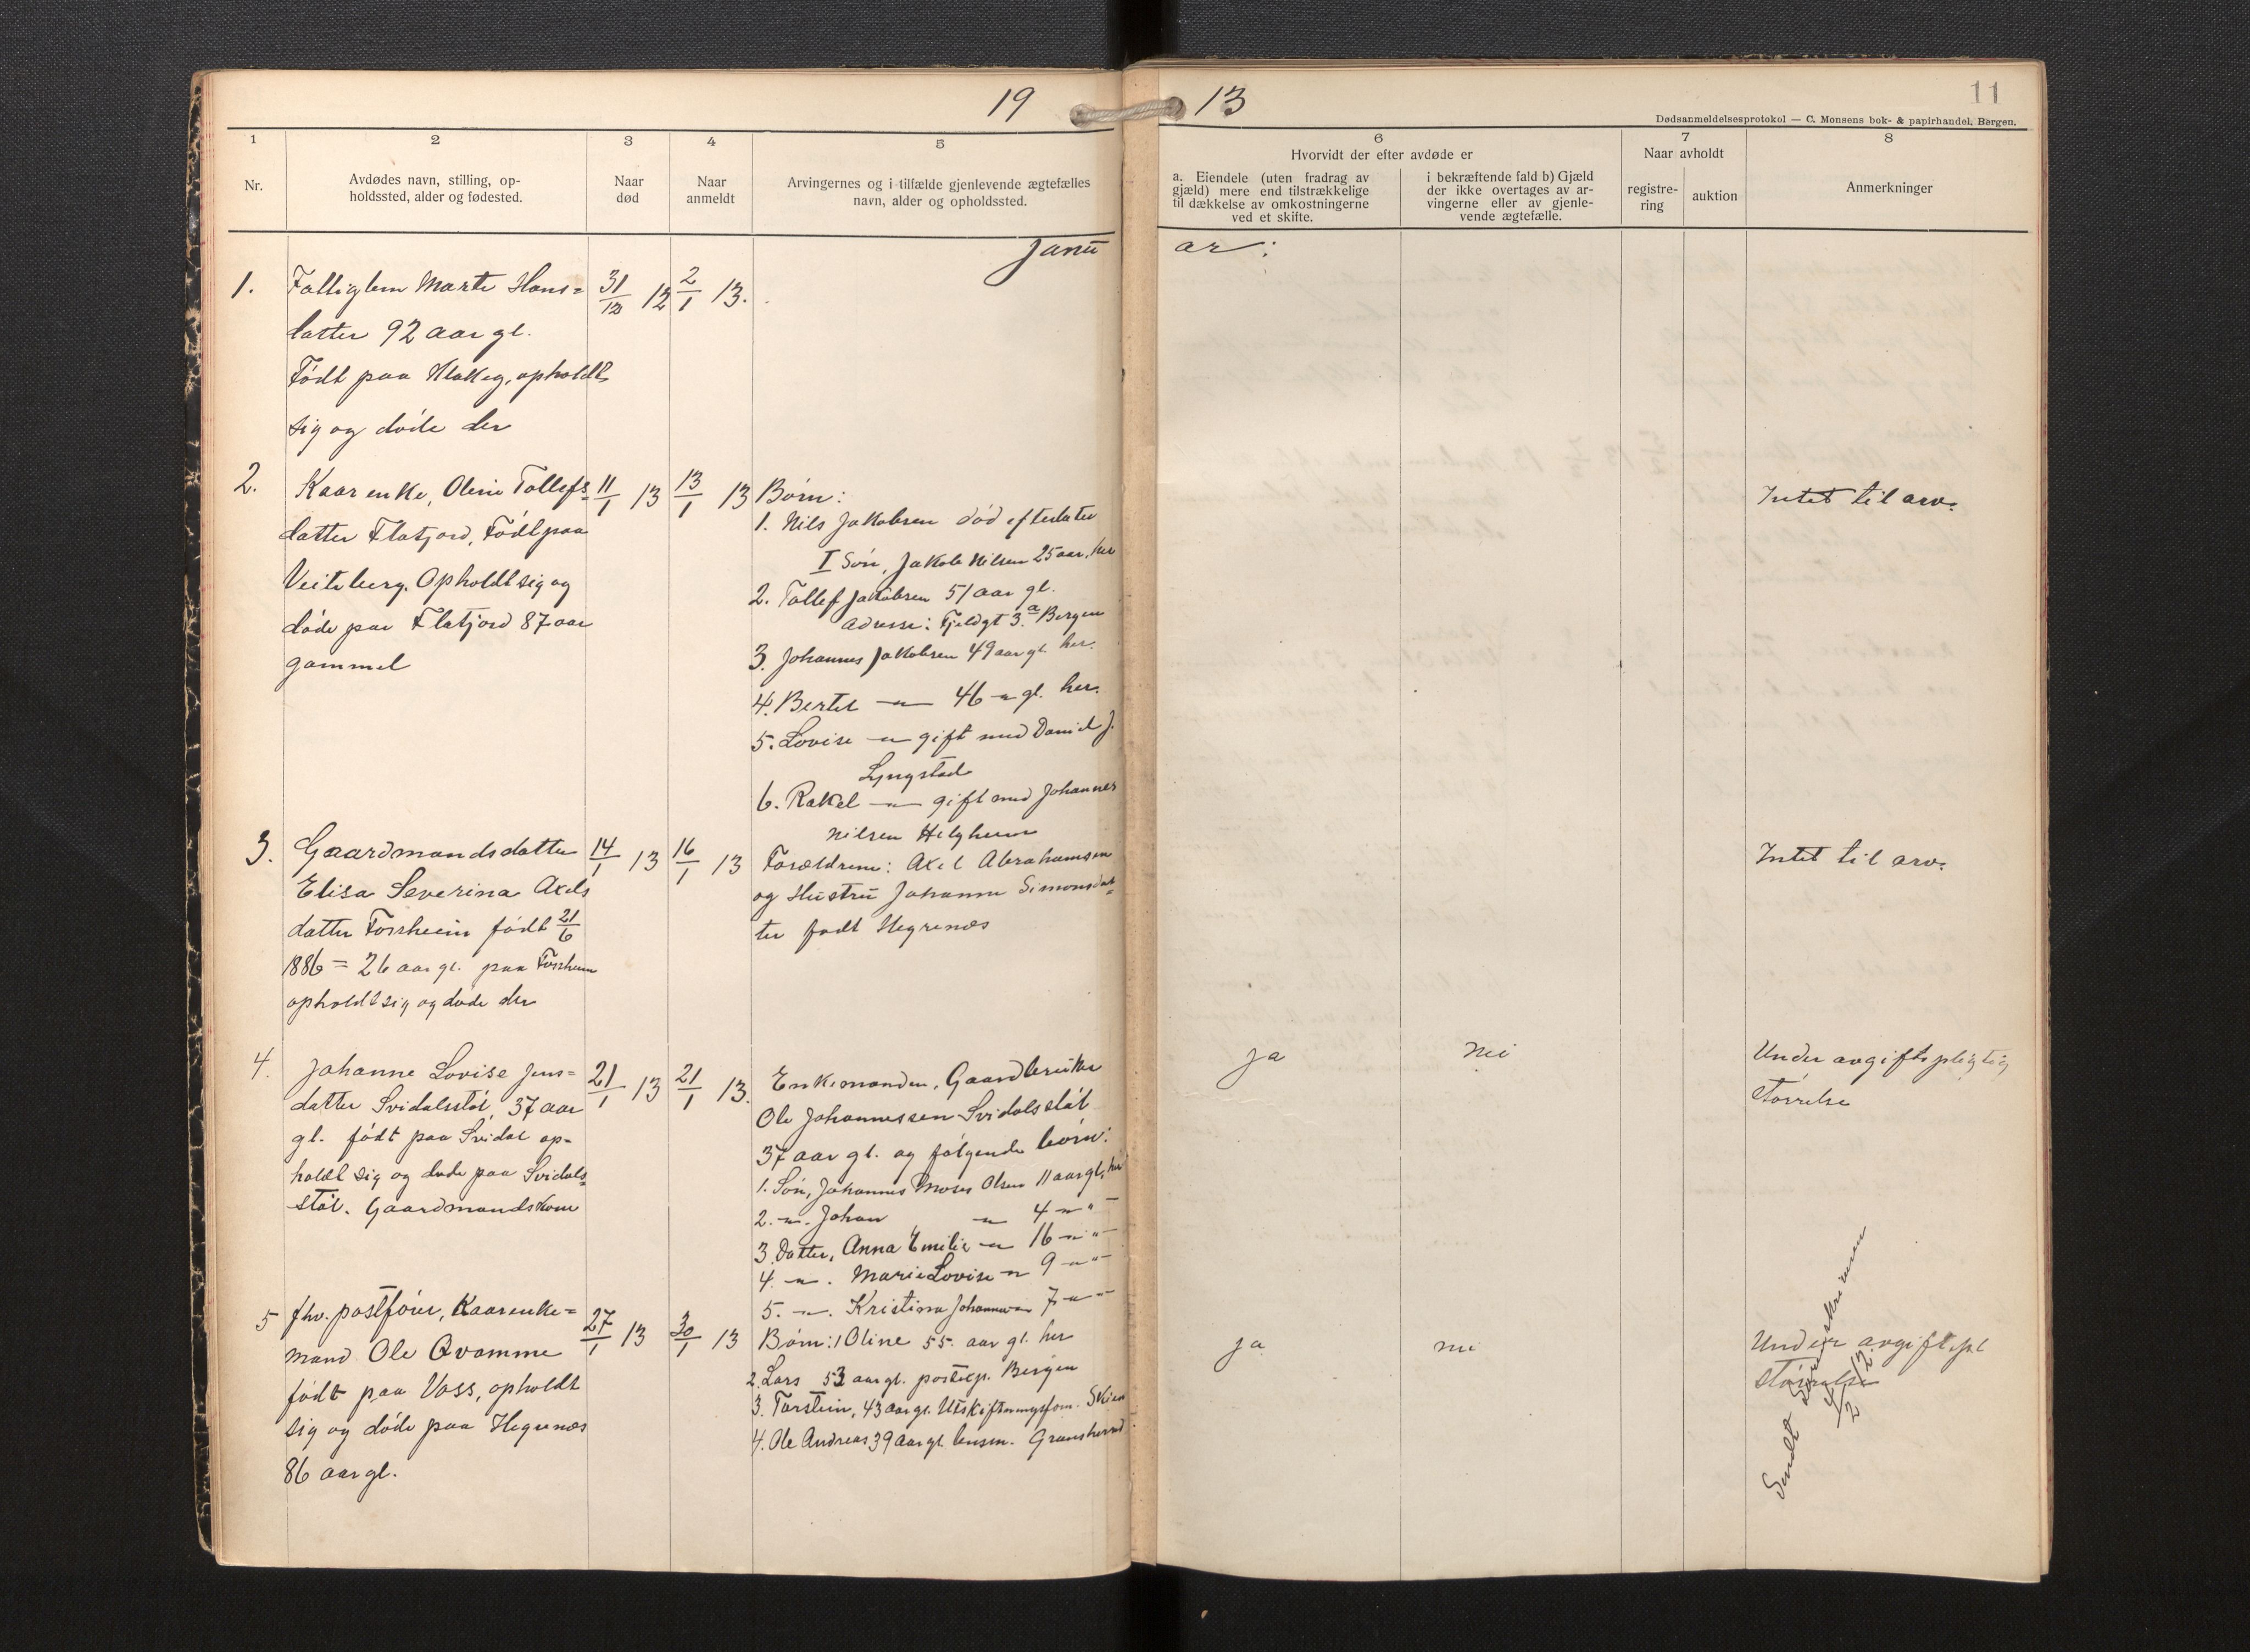 19
13
11
Dødsanmeldelsesprotokol — C. Monsens bok- & papirhandel, Bergen.
1
Nr.
2
Avdødes navn, stilling, op-
holdssted, alder og fødested.
3
Naar
død
4
Naar
anmeldt
5
Arvingernes og i tilfælde gjenlevende ægtefælles
navn, alder og opholdssted.
6
Hvorvidt der efter avdøde er
a. Eiendele (uten fradrag av
gjæld) mere end tilstrækkelige
til dækkelse av omkostningerne
ved et skifte.
i bekræftende fald b) Gjæld
der ikke overtages av ar-
vingerne eller av gjenle-
vende ægtefælle.
7
Naar avholdt
registre-
ring
auktion
8
Anmerkninger
Janu
ar:
1.
Fattiglem Marte Hans=
datter 92 aar gl.
Født paa Klakeg, opholdt
sig og døde der
31/12 12
2/1 13.
2.
Kaarenke, Oline Tollefs=
datter Flatjord, Født paa
Veiteberg. Opholdt sig og
døde paa Flatjord 87 aar
gammel
11/1 13
13/1 13
Børn:
1. Nils Jakobsen død efterlater
I Søn, Jakob Nilsen 25 aar, her
2. Tollef Jakobsen 51 aar gl.
Adresse: Fjeldgt 3.a Bergen
3. Johannes Jakobsen 49 aar gl. her.
4. Bertel —"— 46 —"— gl. her.
5. Lovise —"— gift med Daniel J.
Lyngstad
6. Rakel —"— gift med Johannes
Nilsen Helgheim
Intet til arv.
3.
Gaardmandsdatter
Elisa Severina Axels
datter Forsheim født 21/6
1886 = 26 aar gl. paa Forsheim
opholdt sig og døde der
14/1 13
16/1 13
Forældrene: Axel Abrahamsen
og Hustru Johanne Simonsdat=
ter født Hegrenæs
Intet til arv.
4.
Johanne Lovise Jens=
datter Svidalsstøl, 37 aar
gl. født paa Svidal op=
holdt sig og døde paa Svidals=
støl. Gaardmandskone
21/1 13
21/1 13.
Enkemanden, Gaardbruker
Ole Johannessen Svidalsstøl
37 aar gl. og følgende børn:
1. Søn, Johannes Moses Olsen 11 aar gl. her
2. —"—. Johan —"— 4 —"— "
3. Datter, Anna Emilie —"— 16 —"— "
4. —"—. Marie Lovise —"— 9 —"— "
5. —"—. Kristina Johanna —"— 7 —"— "
ja
nei
Under avgiftspligtig
størrelse
5
fhv. postfører, Kaarenke=
mand Ole Qvamme
født paa Voss, opholdt
sig og døde paa Hegrenæs
86 aar gl.
27/1 13
30/1 13
Børn: 1 Oline 55 aar gl. her
2. Lars 53 aar gl. postexp. Bergen
3. Torstein, 43 aar gl. Utskiftningsform. Skien
4. Ole Andreas 39 aar gl. lensm. Gransherred
ja
nei
Under avgiftspl
størrelse
Sendt
4/2 13